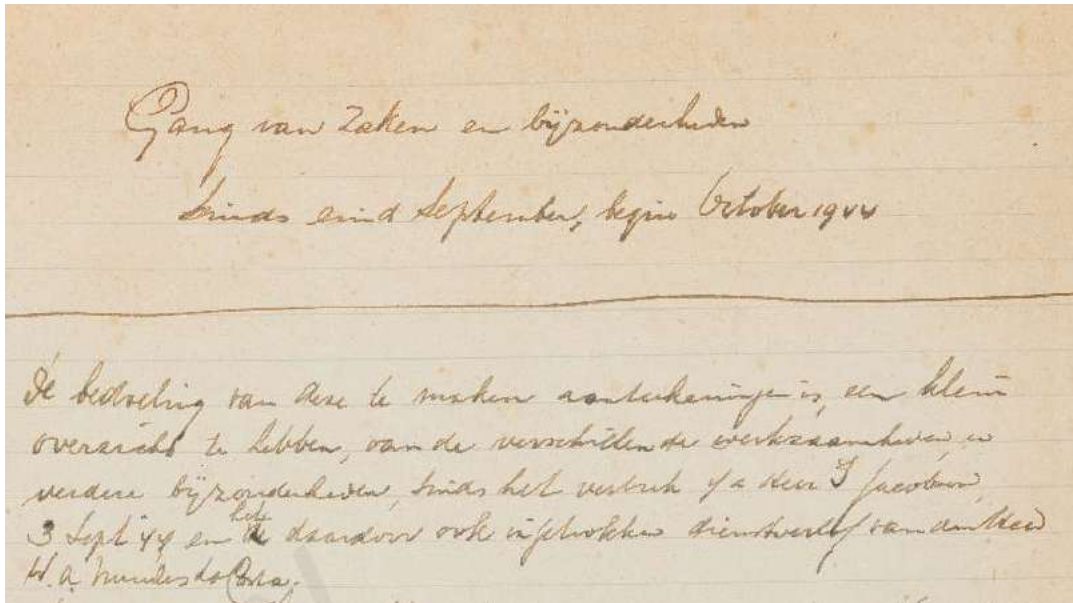 Gang van Zaken en bijzonderheden
Sinds eind September, begin October 1944
De bedoeling van deze te maken aantekeningen is, een klein
overzicht te hebben, van de verschillende werkzaamheden, en
verdere bijzonderheden, sinds het vertrek v/d Heer J Jacobson,
3 Sept '44 en het daardoor ook ingetrokken dienstverlof van den Heer
H. a. Mendes da Costa.